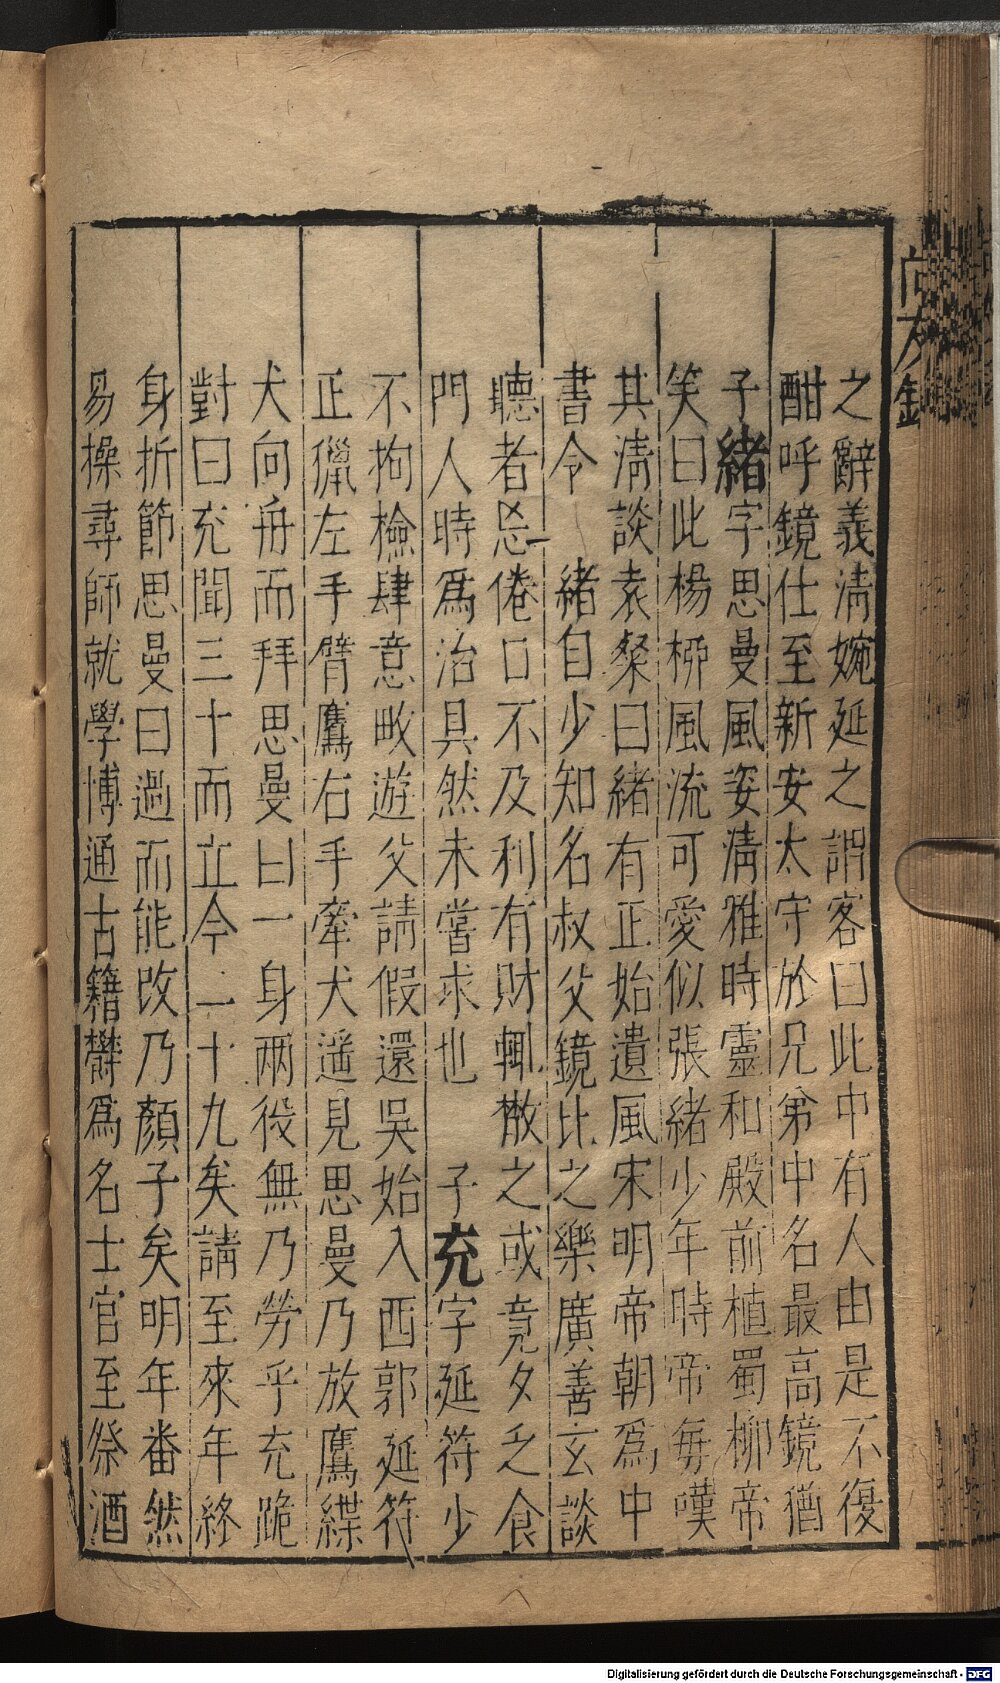 之辭義清婉延之謂客曰此中有人由是不復
酣呼鏡仕至新安太守於兄弟中名最高鏡猶
子緒字思曼風姿清雅時靈和殿前植蜀柳帝
笑曰此楊柳風流可愛似張緒少年時帝每嘆
其清談袁粲曰緒有正始遺風宋明帝朝爲中
書令　緒自少知名叔父鏡比之樂廣善玄談
聽者忘倦口不及利有財輒散之或竟夕乏食
門人時爲治具然未嘗求也　子充字延符少
不拘檢肆意畋遊父請假還吳始入西郭延符
正獵左手臂鷹右手牽犬遥見思曼乃放鷹緤
犬向舟而拜思曼曰一身兩役無乃勞乎充跪
對曰充聞三十而立今二十九矣請至來年終
身折節思曼曰過而能改乃顏子矣明年番然
易操尋師就學博通古籍欝爲名士官至祭酒
Digitalisierung gefördert durch die Deutsche Forschungsgemeinschaft - DFG